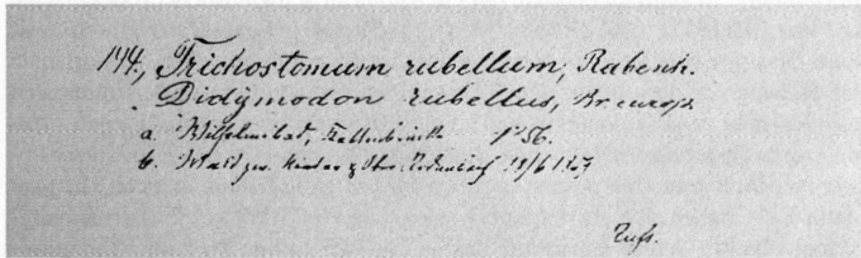 144., Trichostomum rubellum, Rabenh.
Didÿmodon rubellus, Br. europ
a Wilhelmsbad, 1856.
b. Wald zw. Nieder & Ober Rodenbach 19/6 1867